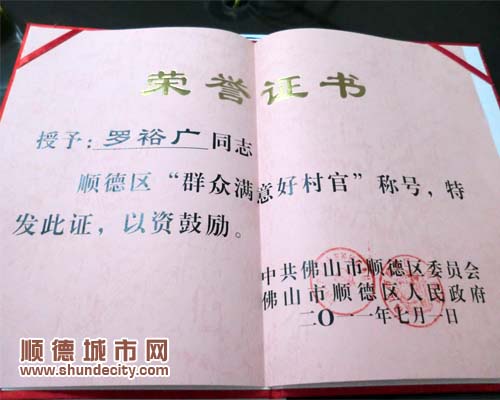 荣誉证书
授予：罗裕广同志
顺德区“群众满意好村官”称号，特
发此证，以资鼓励。
中共佛山市顺德区委员会
佛山市顺德区人民政府
二〇一一年七月一日
顺德城市网
www.shundecity.com